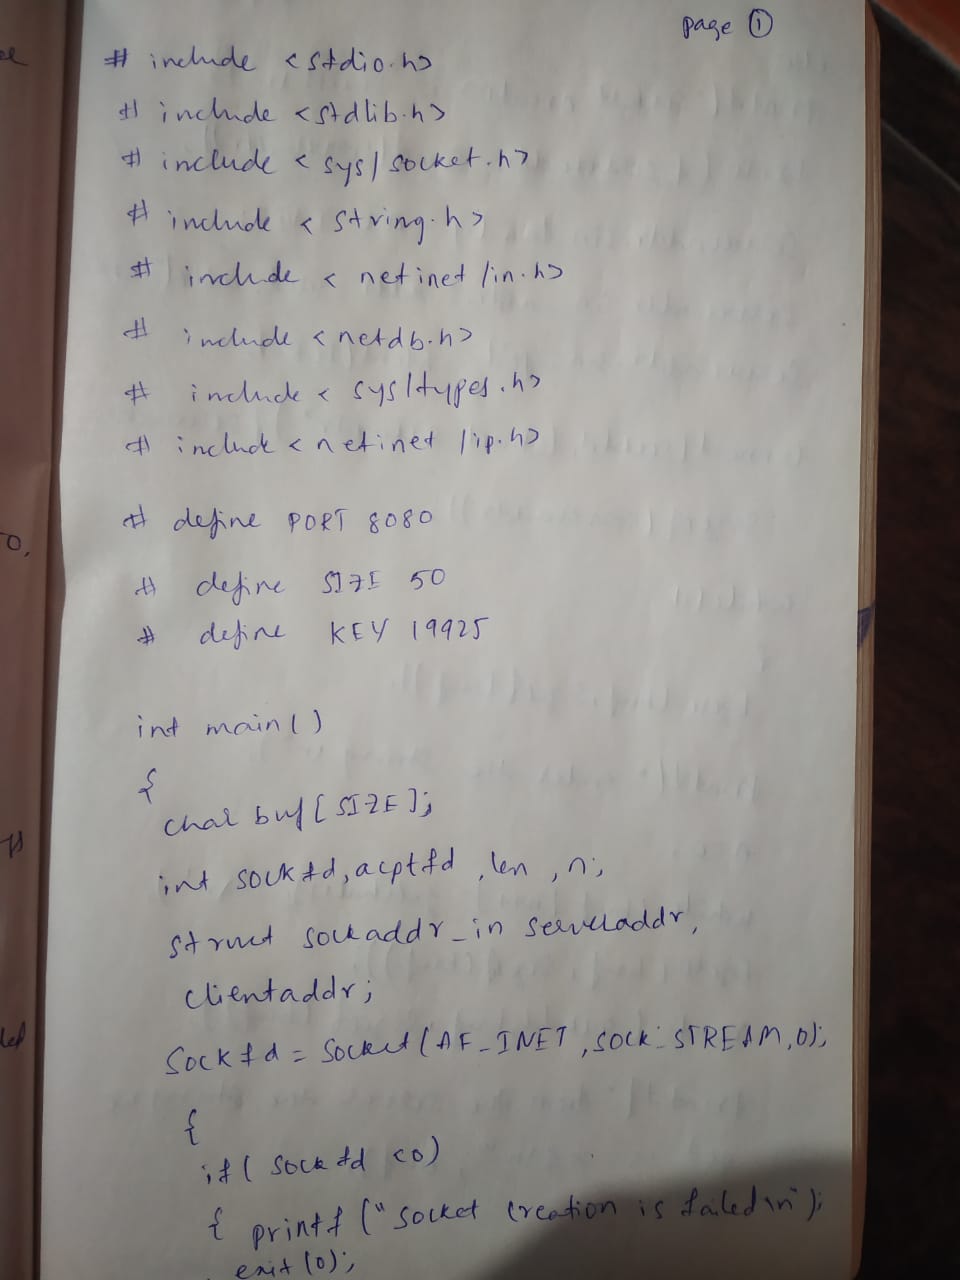 page ①
# include <stdio.h>
# include <stdlib.h>
# include < sys/socket.h>
# include < string.h>
# include < netinet/in.h>
# include <netdb.h>
# include < sys/types.h>
# include <netinet/ip.h>
# define PORT 8080
# define SIZE 50
# define KEY 19925
int main()
{
char buf[SIZE];
int sockfd,acptfd,len,n;
struct sockaddr_in serveraddr,
clientaddr;
Sockfd = Socket(AF_INET,SOCK_STREAM,0);
{
if( sockfd <0)
{ printf ("socket creation is failed\n");
exit(0);